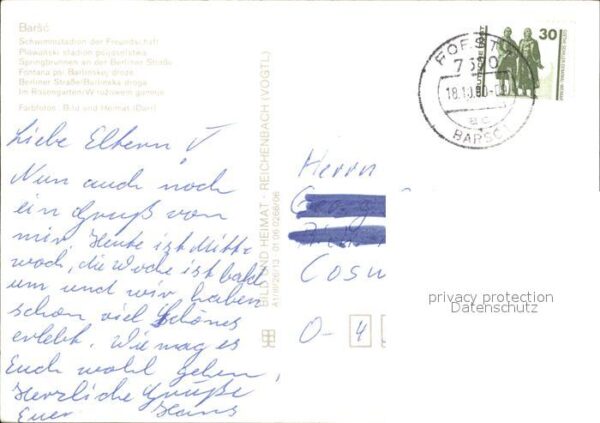 Baršć
Schwimmstadion der Freundschaft
Płuwanski stadion pśijaśelstwa
Springbrunnen an der Berliner Straße
Fontana pśi Barlinskej droze
Berliner Straße/Barlinska droga
Im Rosengarten/W rožowem garoźe
Farbfotos: Bild und Heimat (Darr)
BILD UND HEIMAT · REICHENBACH (VOGTL)
A1/III/26/13 01 06 0266/06
Liebe Eltern
Nun auch noch
ein Gruß von
mir. Heute ist Mitt-
woch, die Woche ist bald
um und wir haben
schon viel Schönes
erlebt. Wie mag es
Euch wohl gehen,
Herzliche Grüße
Euer Hans
30
DEUTSCHE POST
18.10.90-0
BARŠĆ
Herrn
Cosw
O- 4
privacy protection
Datenschutz